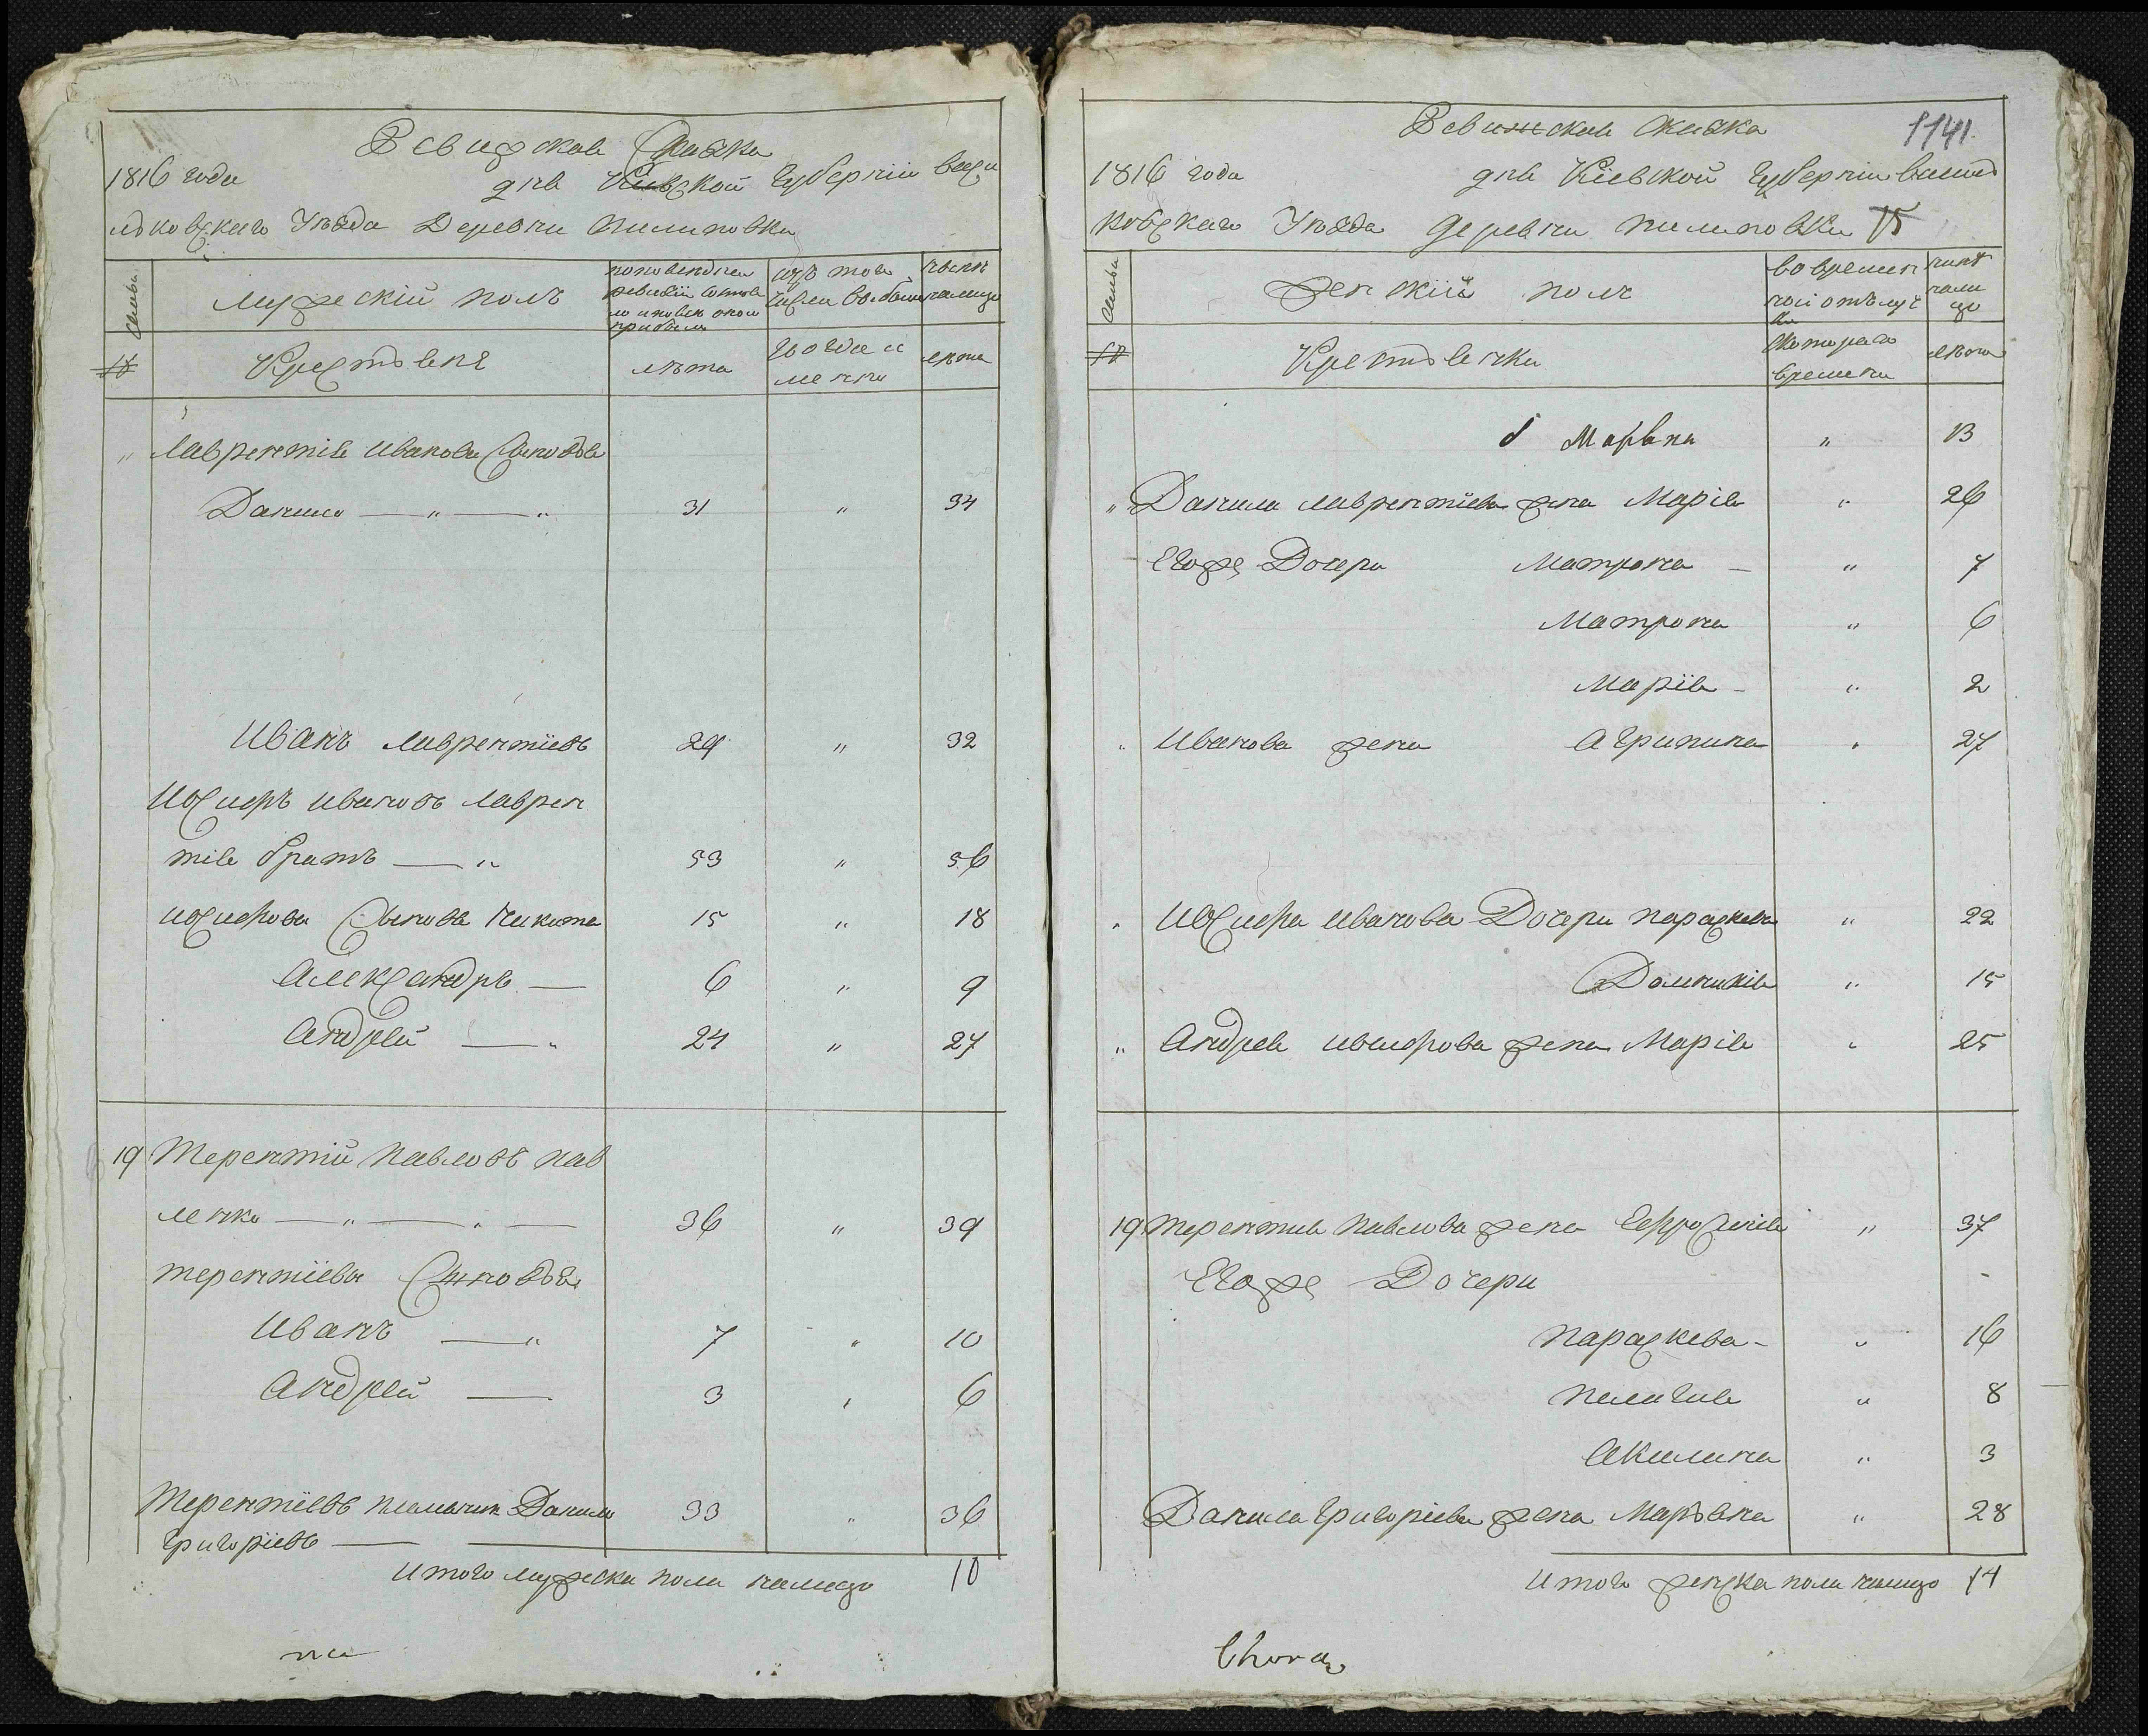 Ревижская Сказка
1816 года дня Киевской Губернии Васи
лковскаго Уѣзда Деревни Пилиповки
семьи
Мужескій полъ
по последней ревизіи состояло и после оной прибыло
изъ того числа выбыло
ныне налицо
18
Крестьяне
лѣта
лѣта
Лаврентія Иванова Сыновья
Данило — „ — „ 31 „ 34
Иванъ Лаврентіевъ 29 „ 32
Иосифъ Ивановъ Лаврен
тія братъ — „ 53 „ 56
Иосифова Сыновья Никита 15 „ 18
Александръ — 6 „ 9
Андрей — „ 24 „ 27
19 Терентій Павловъ Пав
ленко — „ — „ — 36 „ 39
Терентіева Сыновья
Иванъ — „ 7 „ 10
Андрей — 3 „ 6
Терентіевъ племяник Данило 33 „ 36
Григоріевъ —
Итого мужеска пола налицо 10
на
Ревижская Сказка 1141
1816 года дня Киевской Губернии Василь
ковскаго Уѣзда Деревни Пилиповки 75
семьи
Женскій полъ
во временной отлучке
ныне налицо
18
Крестьянки
с которого времени
лѣта
Марьяна „ 13
„ Данила Лаврентіева жена Марія „ 26
Егожъ Дочери Матрона — „ 7
Матрона „ 6
Марія — „ 2
„ Иванова жена Агрипина „ 27
„ Иосифа Иванова Дочери Параскева „ 22
Домникія „ 15
„ Андрея Иосифова жена Марія „ 25
19 Терентия Павлова жена Ефросинія „ 37
Егожъ Дочери
Параскева — „ 16
Пелагия „ 8
Акилина „ 3
Данила Григоріева жена Марьяна „ 28
Итого женска пола налицо 14